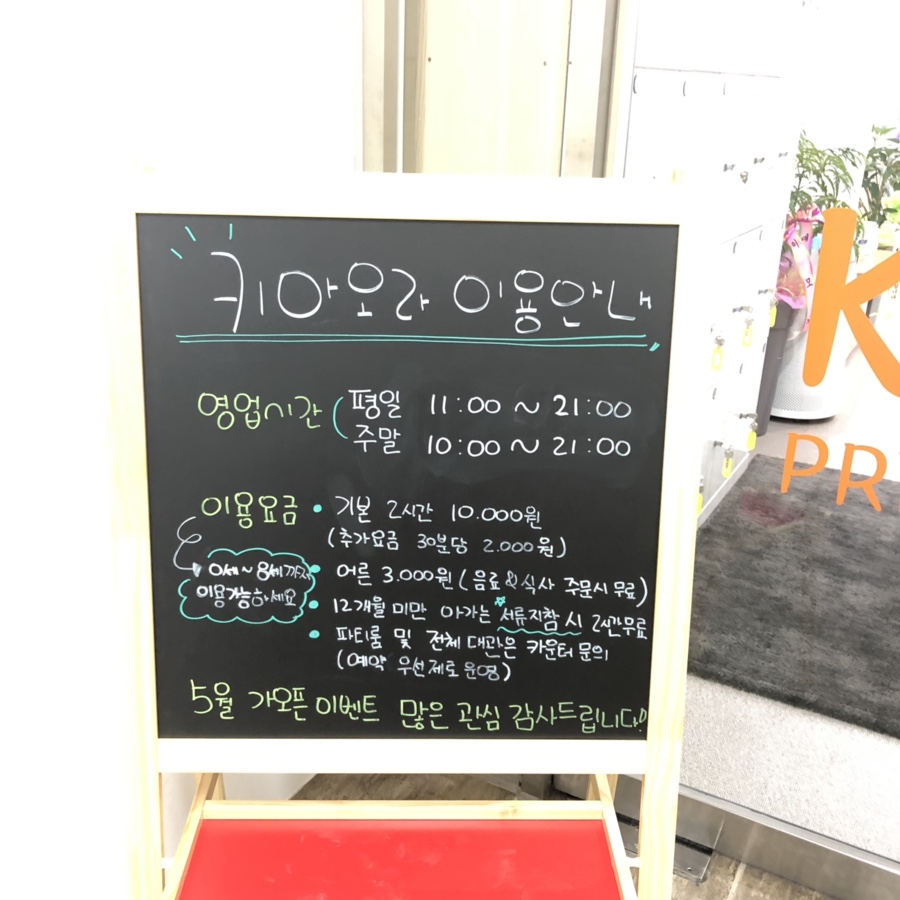 키아오라 이용안내
영업시간 평일 11:00 ~ 21:00
주말 10:00 ~ 21:00
이용요금 • 기본 2시간 10.000원
(추가요금 30분당 2.000원)
0세~8세까지
이용가능하세요
• 어른 3.000원 (음료&식사 주문시 무료)
• 12개월 미만 아가는 서류지참 시 2시간무료
• 파티룸 및 전체 대관은 카운터 문의
(예약 우선제로 운영)
5월 가오픈 이벤트 많은 관심 감사드립니다!
K
PR